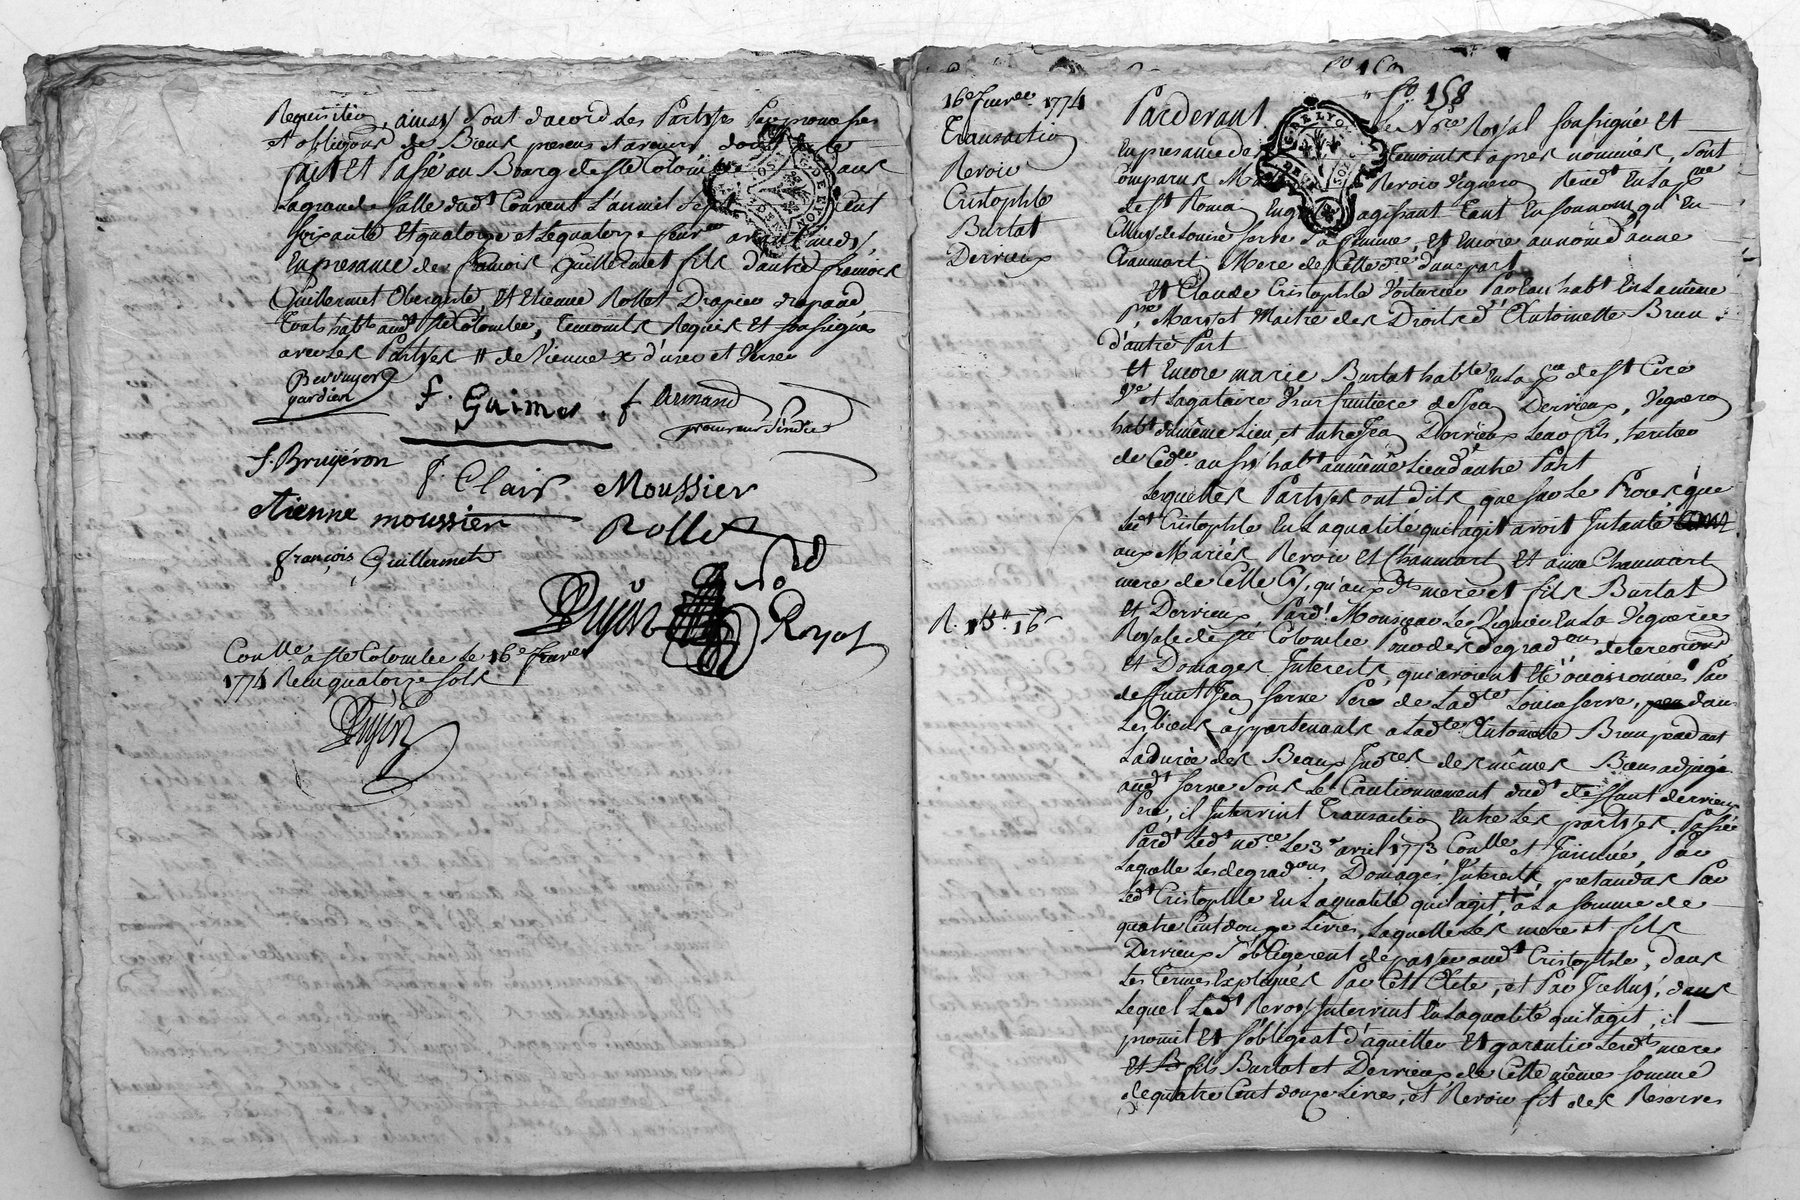 Requisition, ainsy sont dacord les Parties Par promesses
et obligaõns de Biens presens et avenirs dont acte
fait Et Passé au Bourg de Ste Colombe dans
La grande Salle dudt Couvent L'an mil Sept Cent
soixante Et quatorze et Le quatorze fevrer avant midy,
En presance de francois Guillermet fils d'autre francois
Guillermet Obergiste, Et Etienne Rollet Drapier drapant
touts habts audt Ste Colombe, temoints Requis Et soussignés
avec les Parties // de Vienne x d'user et Verser
Berruyer
gardien
f. Guimet
f Armand
procureur sindic
f. Bruyéron
f. Clair
Moussier
etienne moussier
Rollet
françois Guillermet
Dujon
No Rd
Royal
Conlle a Ste Colombe Le 16e fevrer
1774 Recu quatorze sols
Dujon
fo 158
16e fevrer 1774
Transaction
Revoin
Cristophle
Burlat
Derrieux
R. 1s 16
Pardevant Le Nore Royal soussigné Et
En presance des temoints apres nommés, sont
Comparus Revoin Vigneron Residt En la psse
de St Romain En g agissant tant En son nom qu'En
Celluy de Louise serve sa femme, Et Encore au nom d'anne
Chaumart Mere de Cette dre d'une part
Et Claude Cristophle Voiturier Par Eau habt En la même
psse, Mary et Maitre des Droits d'Antoinette Brun
d'autre Part
Et Encore marie Burlat habte En la psse de St Cire
Ve et Lagataire Usufruitiere de feu Derrieux, Vigneron
habt du même Lieu, et autre Jean Derrieux Leur fils, héritier
de Cedr aussy habt au même Lieu d'autre Part
Lesquelles Parties ont dits que sur Le Proces que
Ledt Cristophle En La qualité qu'il agit avoit Intanté
aux Mariés Revoin Et Chaumart Et anne Chaumart
mere de Celle Cy, qu'aux dts mere et fils Burlat
et Derrieux, Pardt Monsieur Le Viguier En La Viguerie
Royale de Ste Colombe Pour des degradons detereorons
Et Domages Interests, qui avoient Eté occasionnés Par
deffunt Jean Serve Pere de Ladte Louise serve, dans
Les biens appartenants a Ladte Antoinette Brun pendant
La durée des Beaux Judres des mêmes Biens adjugés
audt serve sous Le Cautionnement dudt deffunt derrieux
Pere, il Intervint transaction Entre Les parties Passée
Pardt Ledt nore Le 3e avril 1773 Conlle et Insinué, Par
Laquelle Les degradons, Domages Interests pretandus Par
Ledt Cristophle En La qualité qu'il agit, a La somme de
quatre Cent douze Livres, Laquelle Les mere et fils
Derrieux s'obligerent de payer audt Cristophle, dans
Les termes Expliqués Par Cett Acte, et Par Icelluy, dans
Lequel Ledt Revoin Intervint En La qualité qu'il agit, il
promit Et s'obligeat d'aquitter Et garantir Lesdts mere
Et fils Burlat et Derrieux de Cette même somme
de quatre Cent douze Livres, et Revoin fit des Reserves